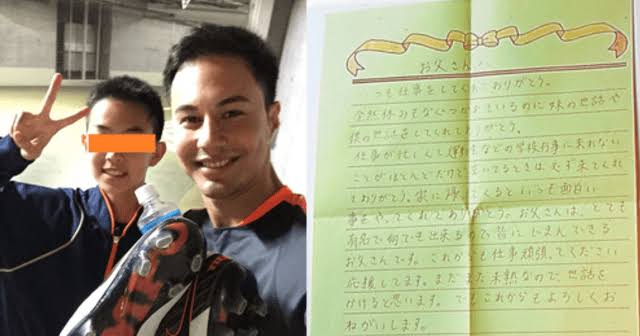 お父さんへ
いつも仕事をしてくれてありがとう。
全然休みもなくつかれているのに妹の世話や
僕の世話をしてくれてありがとう。
仕事が忙しくて運動会などの学校行事に来れない
ことがほとんどだけど空いてるときは必ず来てくれ
てありがとう。家に帰ってくるといつも面白い
事をやってくれてありがとう。お父さんは、とても
有名で何でも出来るので皆にじまんできる
お父さんです。これからも仕事頑張ってください
応援してます。まだまだ未熟なので世話を
かけると思います。でもこれからもよろしくお
ねがいします。